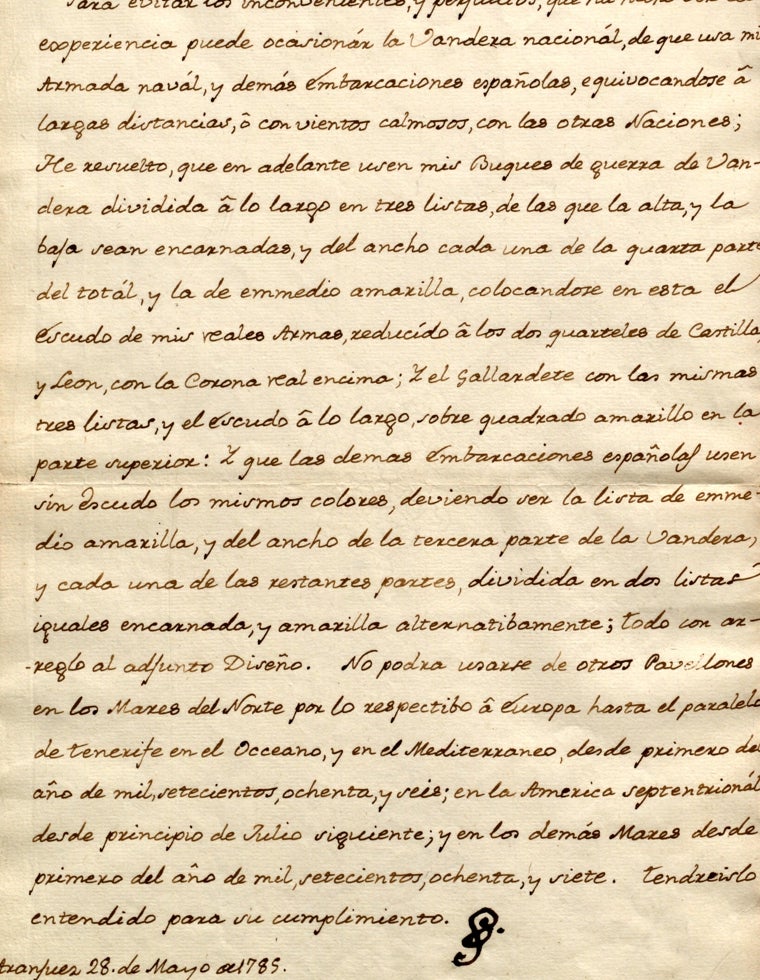 Para evitar los inconvenientes, y perjuicios, que ha
experiencia puede ocasionár la Vandera nacionál, de que usa mi
Armada navál, y demás Embarcaciones españolas, equivocandose â
largas distancias, ô con vientos calmosos, con las otras Naciones;
He resuelto, que en adelante usen mis Buques de guerra de Van-
dera dividida â lo largo en tres listas, de las que la alta, y la
baja sean encarnadas, y del ancho cada una de la quarta parte
del totál, y la de emmedio amarilla, colocandose en esta el
Escudo de mis reales Armas, reducído â los dos quarteles de Castilla,
y Leon, con la Corona real encima; Y el Gallardete con las mismas
tres listas, y el escudo â lo largo, sobre quadrado amarillo en la
parte superior: Y que las demas Embarcaciones españolas usen
sin Escudo los mismos colores, deviendo ser la lista de emme-
dio amarilla, y del ancho de la tercera parte de la Vandera,
y cada una de las restantes partes, dividida en dos listas
iguales encarnada, y amarilla alternatibamente; todo con ar-
-reglo al adjunto Diseño. No podra usarse de otros Pavellones
en los Mares del Norte por lo respectibo â Europa hasta el paralelo
de tenerife en el Occeano, y en el Mediterraneo, desde primero del
año de mil, setecientos, ochenta, y seis; en la America septentrionál
desde principio de Julio siguiente; y en los demás Mares desde
primero del año de mil, setecientos, ochenta, y siete. tendreislo
entendido para su cumplimiento.
Aranjuez 28. de Mayo de 1785.